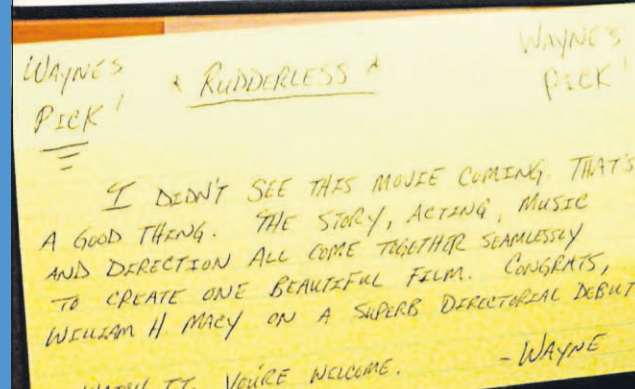 WAYNE'S * RUDDERLESS * WAYNE'S
PICK! PICK!
I DIDN'T SEE THIS MOVIE COMING. THAT'S
A GOOD THING. THE STORY, ACTING, MUSIC
AND DIRECTION ALL COME TOGETHER SEAMLESSLY
TO CREATE ONE BEAUTIFUL FILM. CONGRATS,
WILLIAM H. MACY ON A SUPERB DIRECTORIAL DEBUT
WATCH IT. YOU'RE WELCOME. -WAYNE